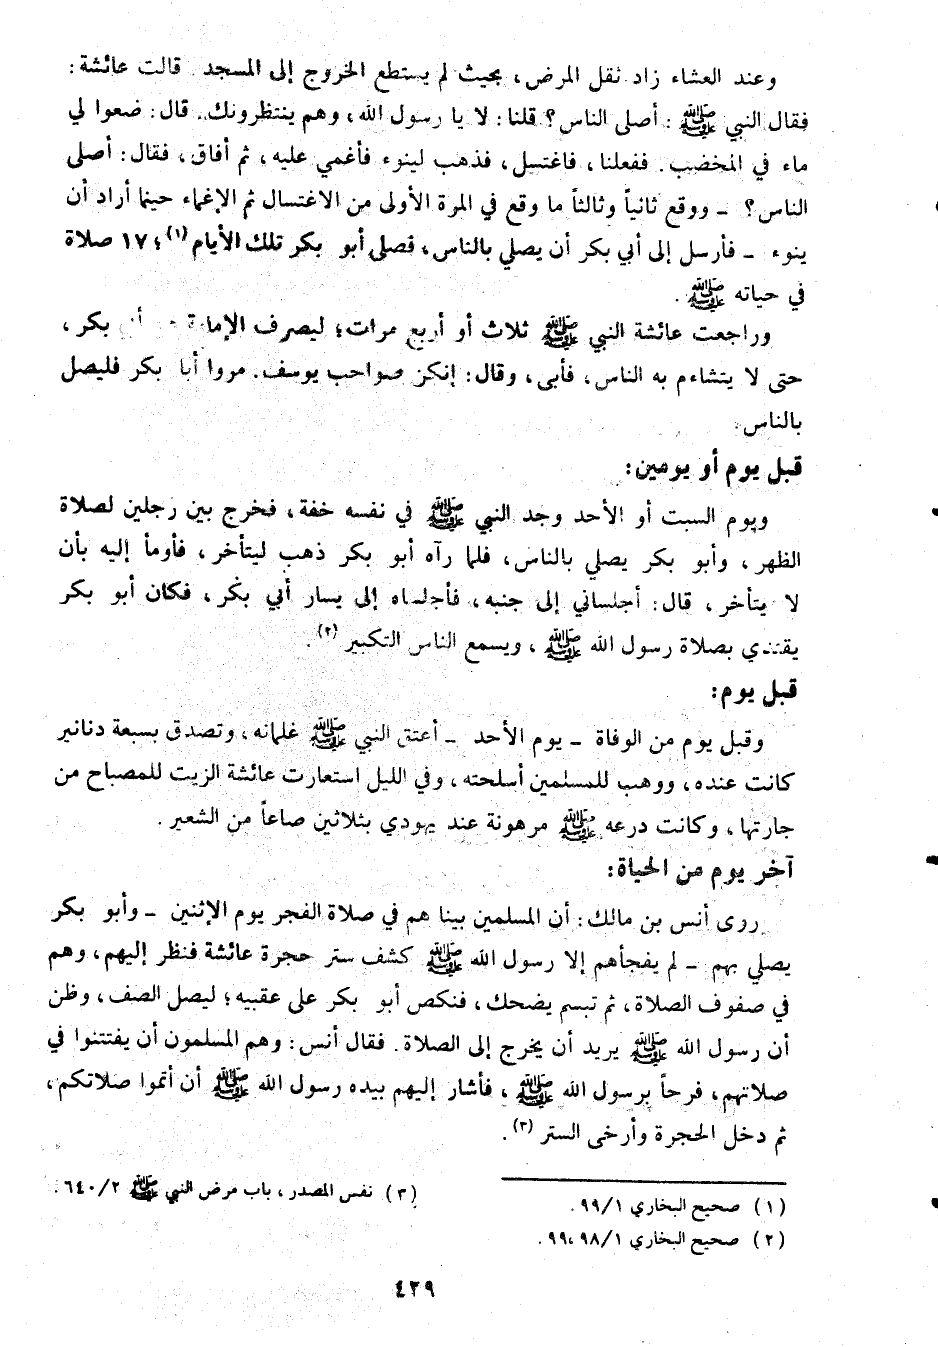 وعند العشاء زاد ثقل المرض، بحيث لم يستطع الخروج إلى المسجد. قالت عائشة:
فقال النبي ﷺ: أصلى الناس؟ قلنا: لا يا رسول الله، وهم ينتظرونك. قال: ضعوا لي
ماء في المخضب. ففعلنا، فاغتسل، فذهب لينوء فأغمي عليه، ثم أفاق، فقال: أصلى
الناس؟ ـ ووقع ثانياً وثالثاً ما وقع في المرة الأولى من الاغتسال ثم الإغماء حينما أراد أن
ينوء ـ فأرسل إلى أبي بكر أن يصلي بالناس، فصلى أبو بكر تلك الأيام (١)؛ ١٧ صلاة
في حياته ﷺ.
وراجعت عائشة النبي ﷺ ثلاث أو أربع مرات؛ ليصرف الإمامة بكر،
حتى لا يتشاءم به الناس، فأبى، وقال: إنكن صواحب يوسف. مروا أبا بكر فليصل
بالناس.
قبل يوم أو يومين:
ويوم السبت أو الأحد وجد النبي ﷺ في نفسه خفة، فخرج بين رجلين لصلاة
الظهر، وأبو بكر يصلي بالناس، فلما رآه أبو بكر ذهب ليتأخر، فأومأ إليه بأن
لا يتأخر، قال: أجلساني إلى جنبه، فأجلساه إلى يسار أبي بكر، فكان أبو بكر
يقتدي بصلاة رسول الله ﷺ، ويسمع الناس التكبير (٢).
قبل يوم:
وقبل يوم من الوفاة ـ يوم الأحد ـ أعتق النبي ﷺ غلمانه، وتصدق بسبعة دنانير
كانت عنده، ووهب للمسلمين أسلحته، وفي الليل استعارت عائشة الزيت للمصباح من
جارتها، وكانت درعه ﷺ مرهونة عند يهودي بثلاثين صاعاً من الشعير.
آخر يوم من الحياة:
روى أنس بن مالك: أن المسلمين بينا هم في صلاة الفجر يوم الإثنين ـ وأبو بكر
يصلي بهم ـ لم يفجأهم إلا رسول الله ﷺ كشف ستر حجرة عائشة فنظر إليهم، وهم
في صفوف الصلاة، ثم تبسم يضحك، فنكص أبو بكر على عقبيه؛ ليصل الصف، وظن
أن رسول الله ﷺ يريد أن يخرج إلى الصلاة. فقال أنس: وهم المسلمون أن يفتتنوا في
صلاتهم، فرحاً برسول الله ﷺ، فأشار إليهم بيده رسول الله ﷺ أن أتموا صلاتكم،
ثم دخل الحجرة وأرخى الستر (٣).
(١) صحيح البخاري ٩٩/١.
(٢) صحيح البخاري ٩٨/١، ٩٩.
(٣) نفس المصدر، باب مرض النبي ﷺ ٦٤٠/٢.
٤٢٩